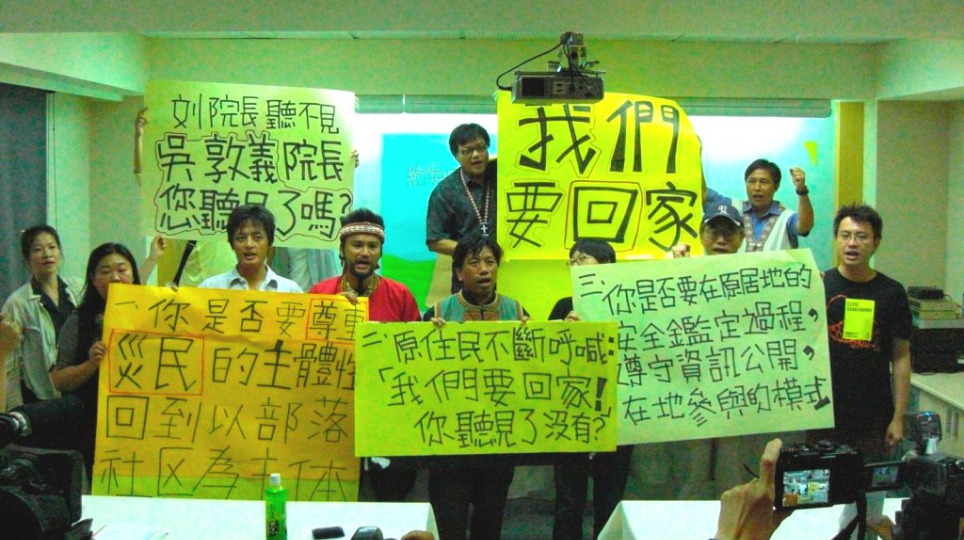 刘院長聽不見
吳敦義院長
您聽見了嗎?
我們
要回家
一、你是否要尊重
災民的主體性
回到以部落
社区為主体
二、原住民不斷呼喊:
「我們要回家!
你聽見了没有?
三、你是否要在原居地的
安全鑑定過程,
遵守資訊公開,
在地參與的模式